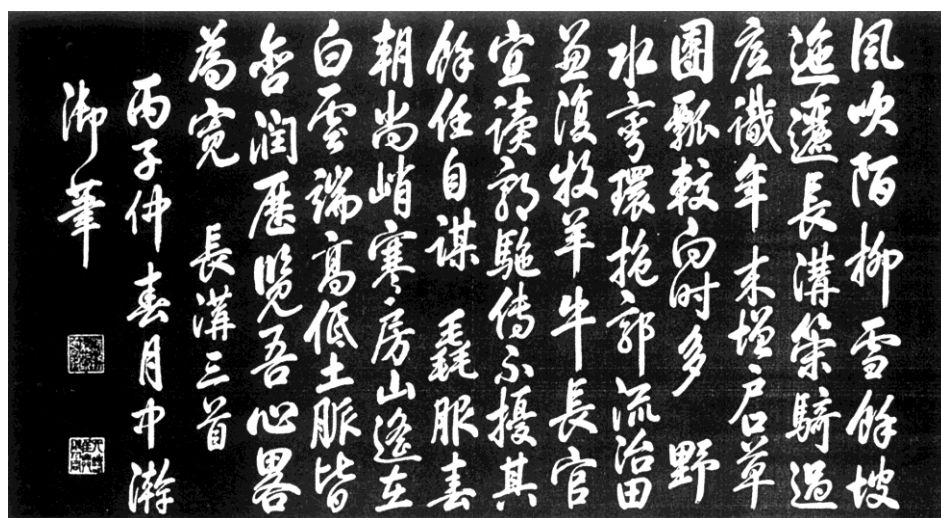 風吹陌柳雪餘坡
迤邐長溝策騎過
底識年来增户口草
團瓢較向时多 野
水彎環抱郭流治田
兼復牧羊牛長官
宜讀郭駞傳不擾其
餘任自謀 毳服春
朝尚峭寒房山遙在
白雲端高低土脈皆
含潤歷覽吾心畧
為寬 長溝三首
丙子仲春月中澣
御筆